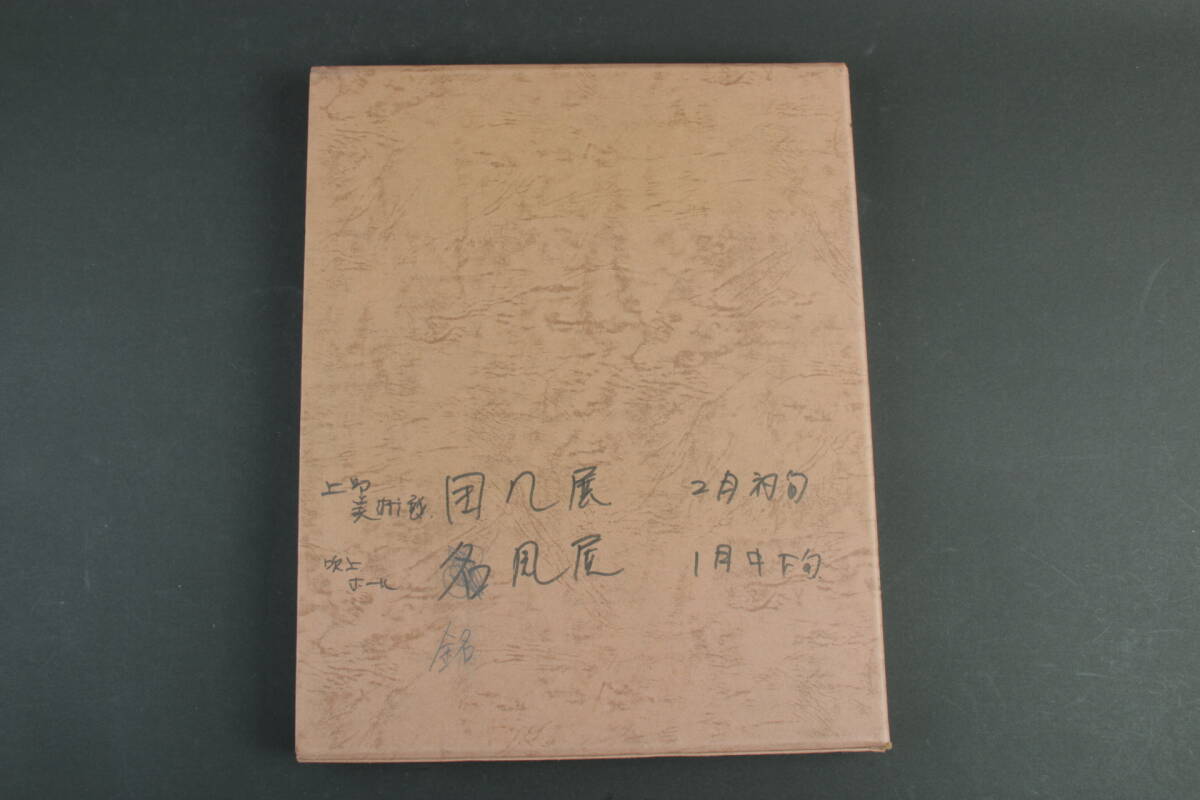 上野
美術館 国風展 2月初旬
吹上
ホール 名風展 1月中下旬
銘